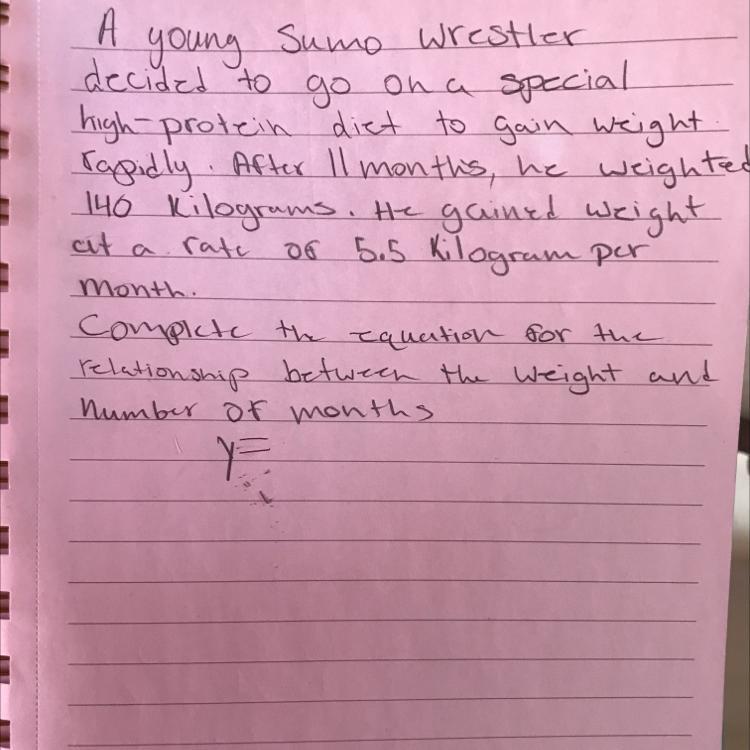 A young Sumo Wrestler
decided to go on a special
high-protein diet to gain weight
rapidly. After 11 months, he weighted
140 Kilograms. He gained weight
at a rate of 5.5 Kilogram per
month.
Complete the equation for the
relationship between the weight and
number of months
y=